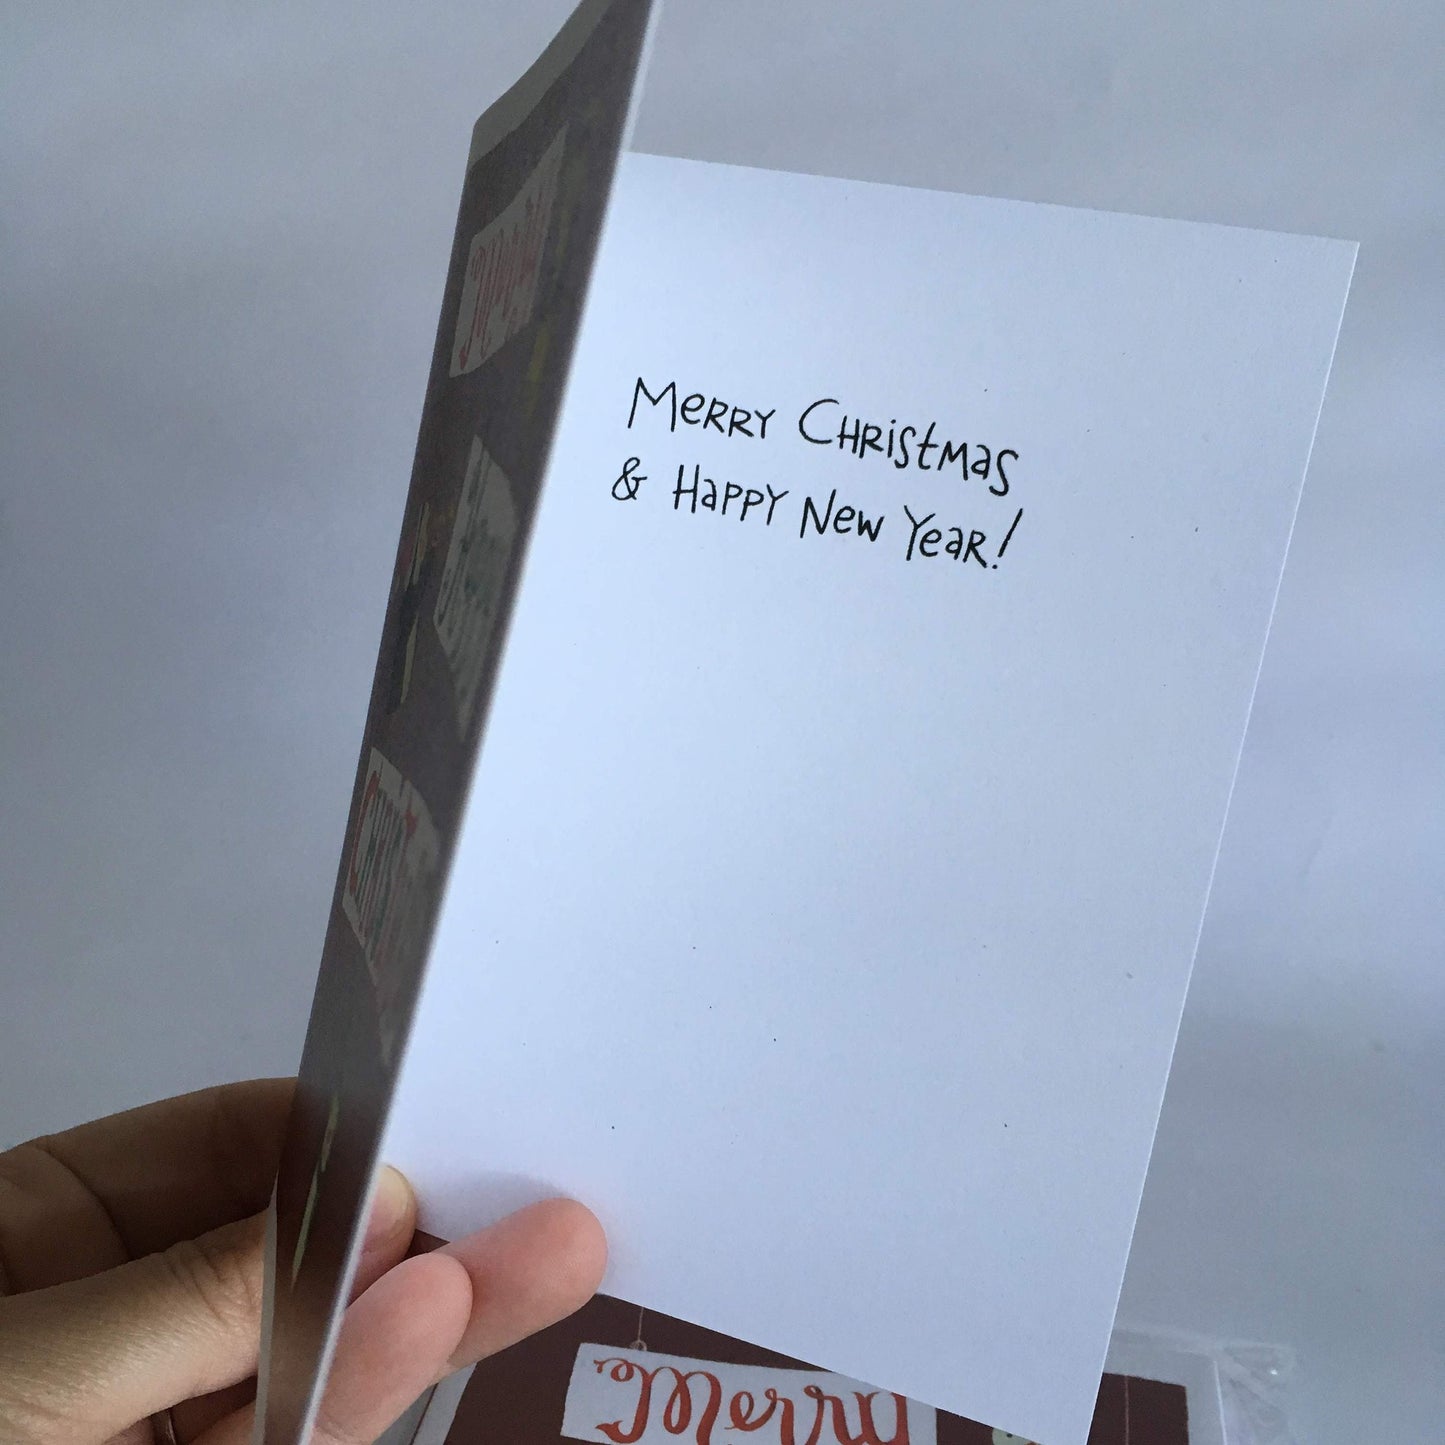 Merry Christmas
& Happy New Year!
Merry